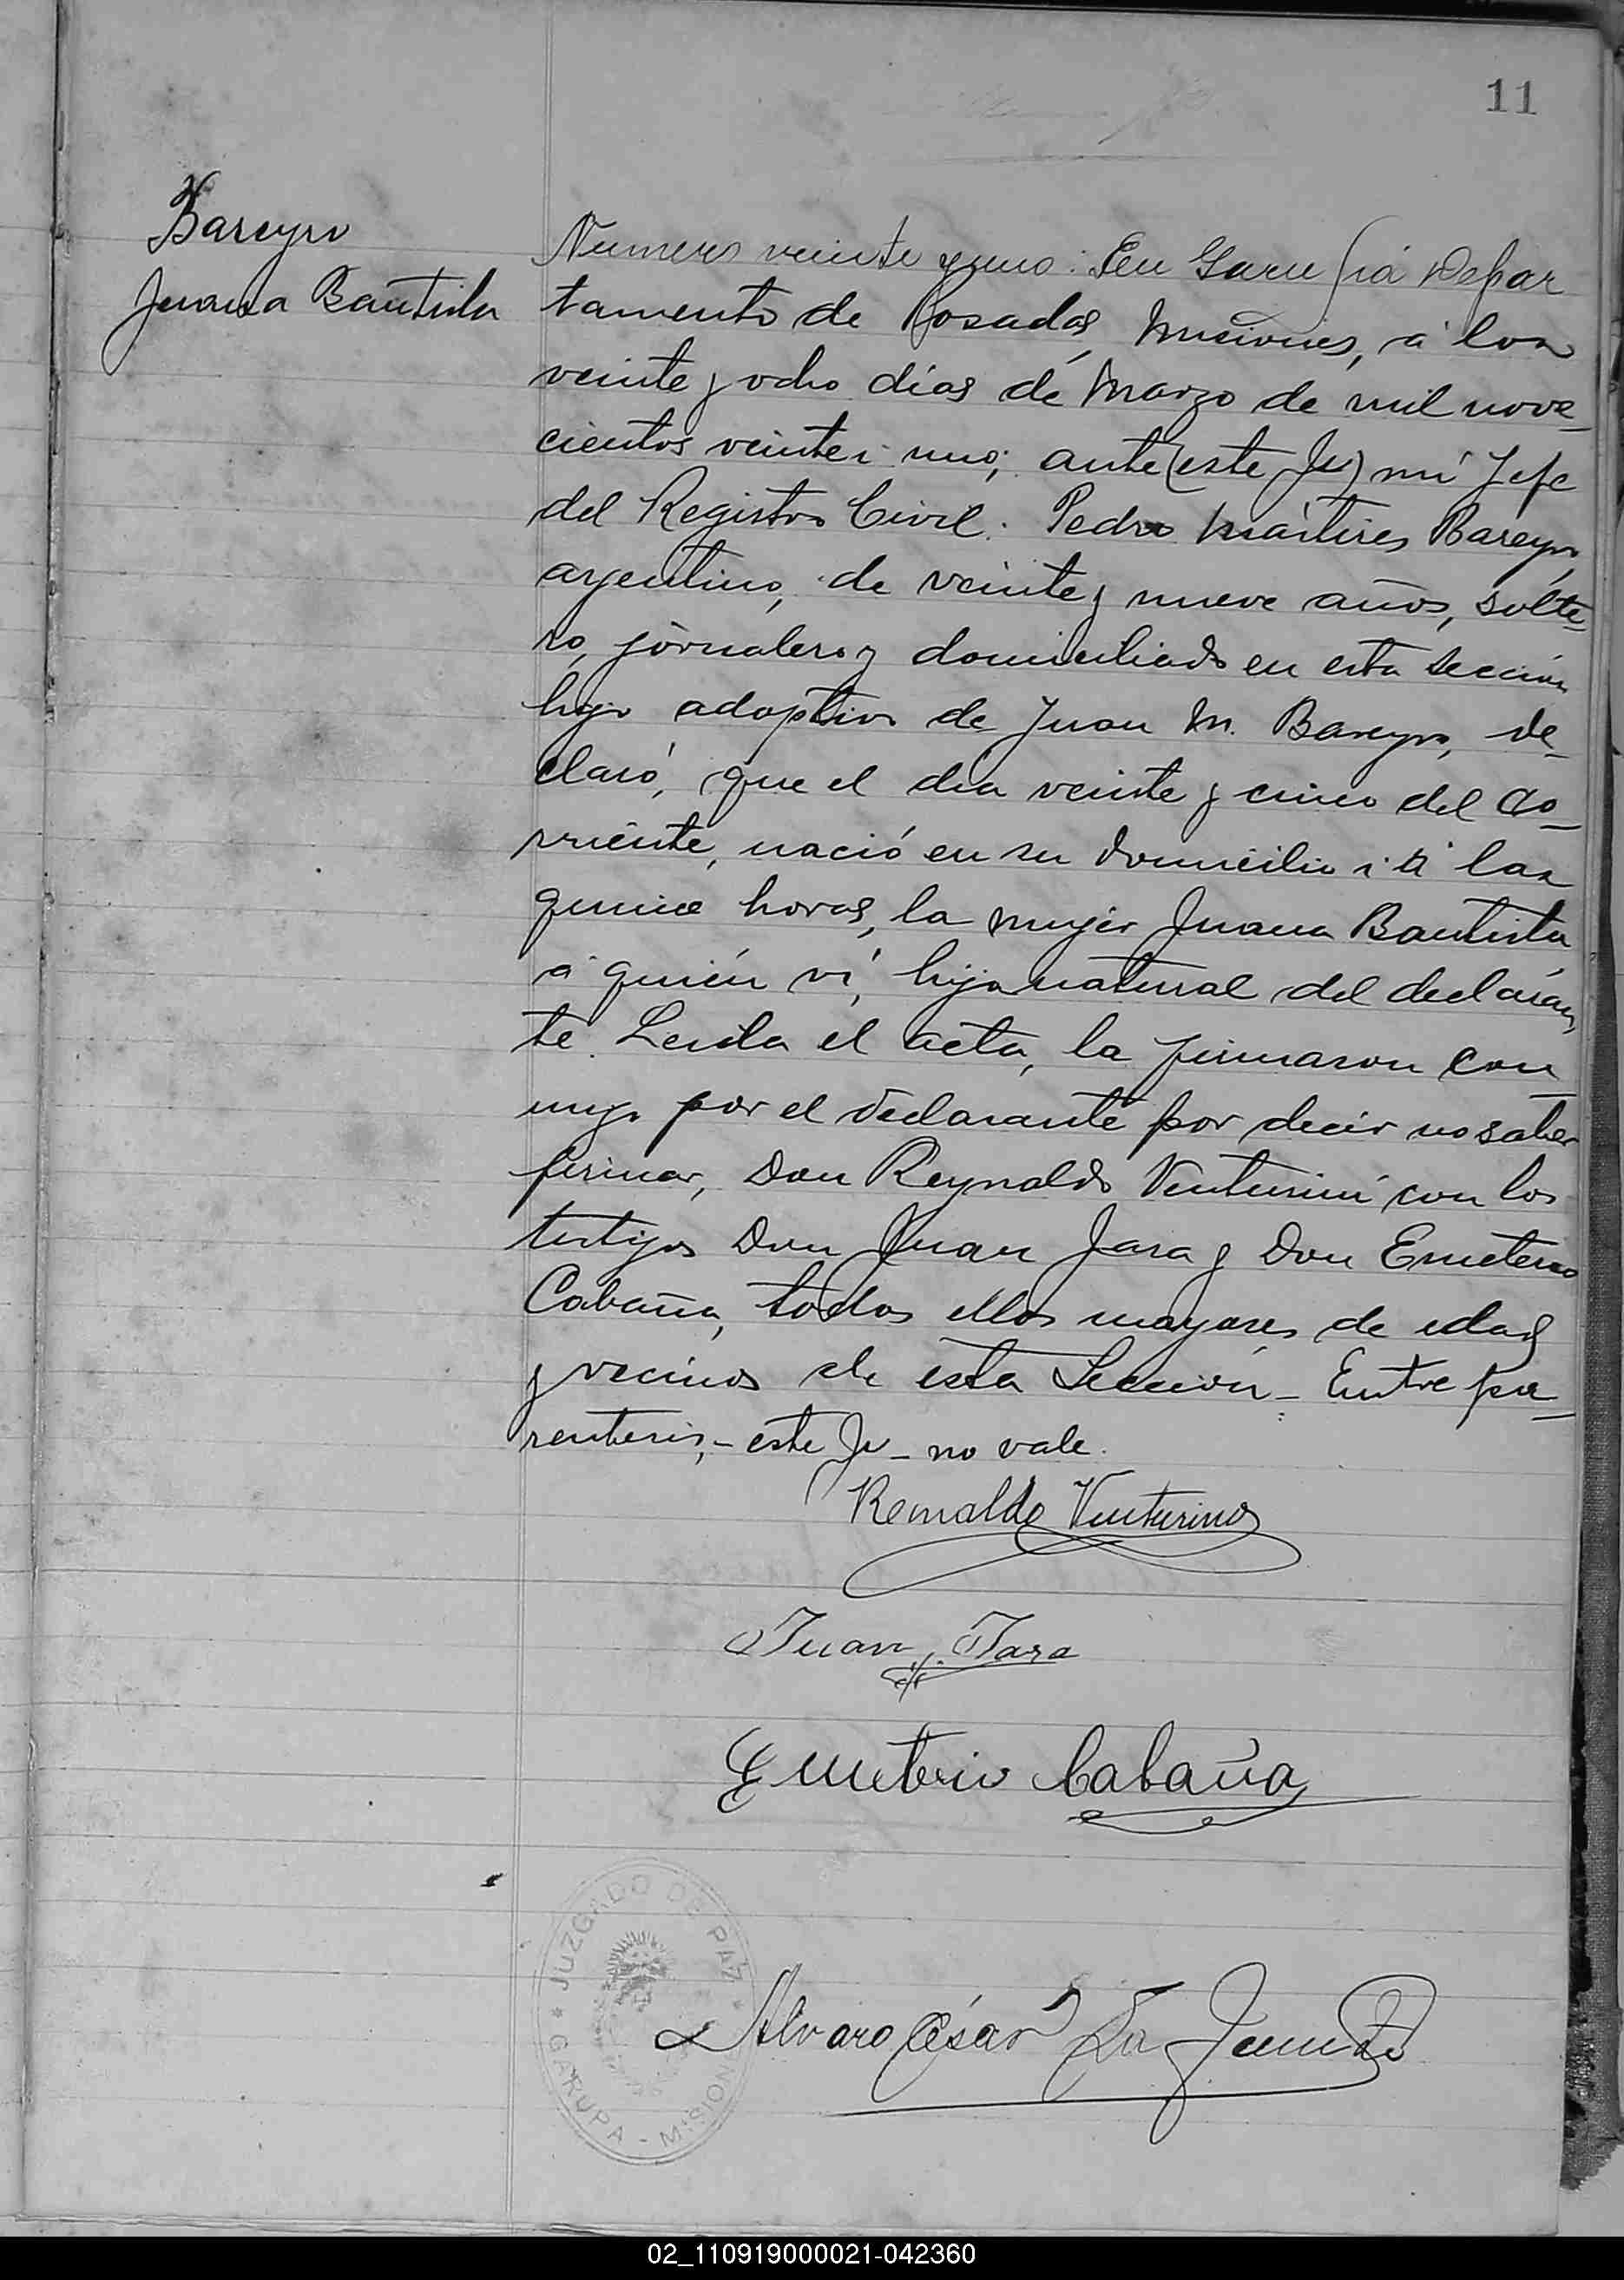 11
Bareyro
Juana Bautista
Numero veinte y uno: En Garupá Depar
tamento de Posadas, Misiones, á los
veinte y ocho días de Marzo de mil nove-
cientos veinte i uno; ante (este Ju) mi Jefe
del Registro Civil. Pedro Mártires Bareyro,
argentino, de veinte y nueve años, solte-
ro, jornalero y domiciliado en esta Sección
hijo adoptivo de Juan M. Bareyro, de-
claró, que el dia veinte y cinco del co-
rriente, nació en su domicilio i á las
quince horas, la mujer Juana Bautista
á quién ví, hija natural del declaran-
te. Leida el acta, la firmaron con-
migo por el declarante por decir no saber
firmar, Don Reynaldo Venturini con los
testigos Don Juan Jara y Don Emeterio
Cabaña, todos ellos mayores de edad
y vecinos de esta Sección - Entre pa-
rentesis, - este Ju - no vale.
Remaldo Venturino
Juan Jara
Emeterio Cabaña
JUZGADO DE PAZ
GARUPA - MISIONES
Alvaro César La
02_110919000021-042360